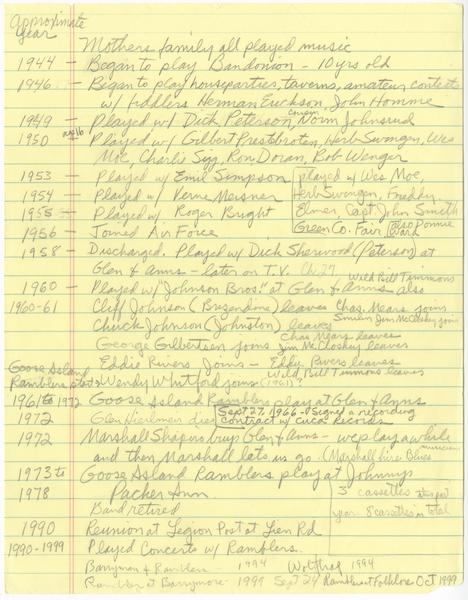 Approximate
Year
Mothers family all played music
1944 — Began to play Bandonion - 10 yrs old
1946 — Began to play houseparties, taverns, amateur contests
w/ fiddlers Herman Erickson, John Homme
1949 — Played w/ Dick Peterson, Norm Johnsrud
age 16
1950 — Played w/ Gilbert Prestbroten, Herb Swenger, Wes
Moe, Charlie Sigg, Ron Doran, Bob Wenger
1953 — Played w/ Emil Simpson
1954 — Played w/ Verne Meisner
1955 — Played w/ Roger Bright
played w/ Wes Moe,
Herb Swenger, Freddy
Elmer, Capt. John Smith
Green Co. Fair also Ronnie
1956 — Joined Air Force
1958 — Discharged. Played w/ Dick Sherwood (Peterson) at
Glen & Anns - later on T.V. Ch 27
1960 — Played w/ "Johnson Bros." at Glen & Anns also
Wild Bill Timmons
1960-61 Cliff Johnson () leaves Chas. Mears joins
Chuck Johnson (Johnston) leaves Smilin Jim McCloskey joins
George Gilbertsen joins Chas Mears leaves
Jim McCloskey leaves
Eddie Rivers joins — Eddie Rivers leaves
Wild Bill Timmons leaves
Goose Island
Ramblers start
Wendy Whitford joins (1961)?
1961 to 1972 Goose Island Ramblers play at Glen & Anns
1972 Glen dies
Sept 27, 1966 - Signed a recording
contract w/ Cuca Records
1972 Marshall Shapiro buys Glen & Anns - we play awhile
and then Marshall lets us go. (Marshall hire Blues musicians
1973 to Goose Island Ramblers play at Johnny's
1978 Packer Inn.
Band retired
3 cassettes
year. 8 cassettes in total
1990 Reunion at Legion Post at Lien Rd
1990-1999 Played Concerts w/ Ramblers.
Barrymore & Ramblers - 1994 1994
Rambler at Barrymore - 1999 Sept 24 Ramblers at Folklore Oct 1999